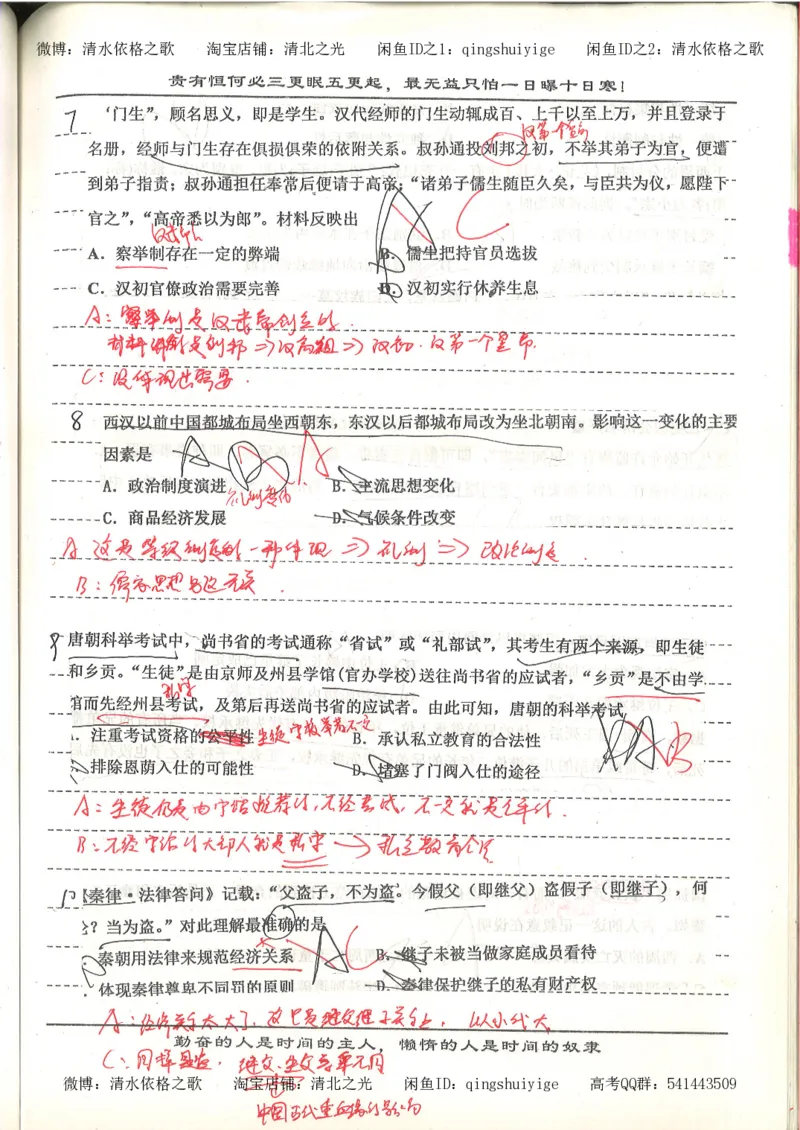 微博：清水依格之歌 淘宝店铺：清北之光 闲鱼ID之1：qingshuiyige 闲鱼ID之2：清水依格之歌
贵有恒何必三更眠五更起，最无益只怕一日曝十日寒！
7 ‘门生”，顾名思义，即是学生。汉代经师的门生动辄成百、上千以至上万，并且登录于
汉第一个皇帝
名册，经师与门生存在俱损俱荣的依附关系。叔孙通投刘邦之初，不举其弟子为官，便遭
到弟子指责；叔孙通担任奉常后便请于高帝：“诸弟子儒生随臣久矣，与臣共为仪，愿陛下
官之”，“高帝悉以为郎”。材料反映出
A C
A．察举制存在一定的弊端 B．儒生把持官员选拔
C．汉初官僚政治需要完善 D．汉初实行休养生息
A：察举制是汉武帝创立的．
材料 是刘邦⇒汉高祖⇒汉初．汉第一个皇帝．
C：没体现出需要．
8 西汉以前中国都城布局坐西朝东，东汉以后都城布局改为坐北朝南。影响这一变化的主要
因素是
A A
A．政治制度演进 B．主流思想变化
C．商品经济发展 D．气候条件改变
A 这是等级制度的一种体现⇒礼制⇒政治制度．
B：儒家思想与这无关．
9 唐朝科举考试中，尚书省的考试通称“省试”或“礼部试”，其考生有两个来源，即生徒
和乡贡。“生徒”是由京师及州县学馆(官办学校)送往尚书省的应试者，“乡贡”是不由学
私学
官而先经州县考试，及第后再送尚书省的应试者。由此可知，唐朝的科举考试
．注重考试资格的公平性 B．承认私立教育的合法性
．排除恩荫入仕的可能性 D．堵塞了门阀入仕的途径
A B
A：生徒 是由学馆推荐的，不经考试，不一定就是公平的．
B：不经学馆的大部人就是私学→私立教育合法
10 《秦律·法律答问》记载：“父盗子，不为盗。今假父（即继父）盗假子（即继子），何
？当为盗。”对此理解最准确的是
A C
秦朝用法律来规范经济关系 B．继子未被当做家庭成员看待
．体现秦律尊卑不同罚的原则 D．秦律保护继子的私有财产权
A：经济关系太大了，这只是继父继子关系，以小代大
勤奋的人是时间的主人，懒惰的人是时间的奴隶
C：同样是盗，继父、生父尊卑不同
微博：清水依格之歌 淘宝店铺：清北之光 闲鱼ID：qingshuiyige 高考QQ群：541443509
中国古代重血缘的影响